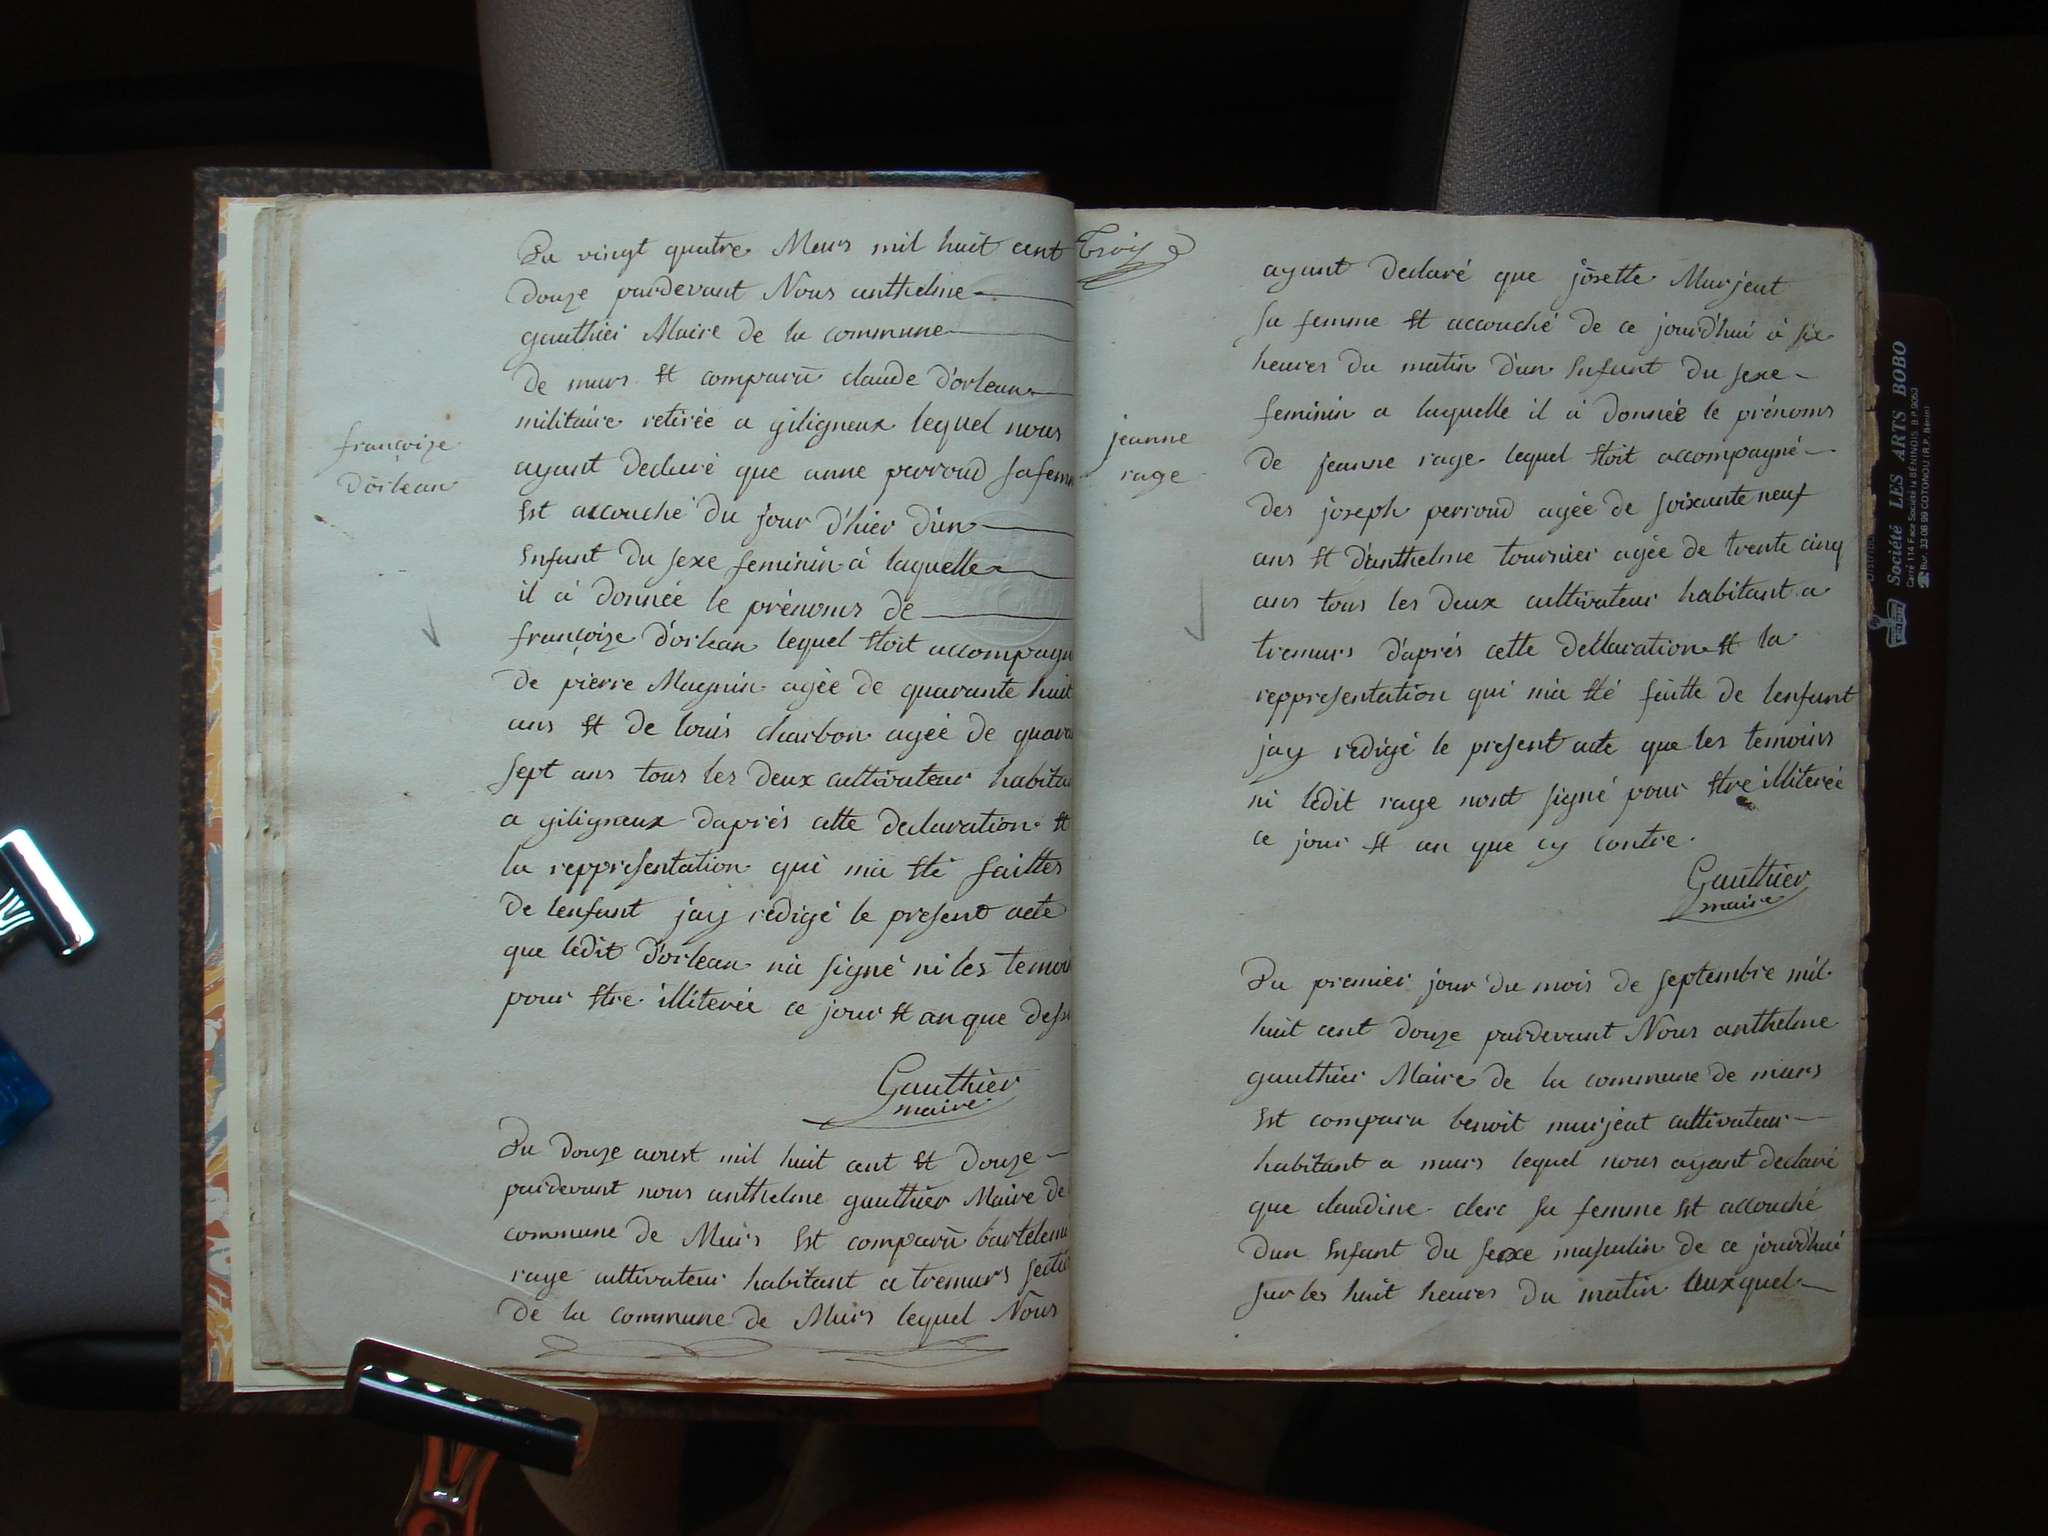 Du vingt quatre Mars mil huit cent
douze pardevant Nous anthelme
gauthier Maire de la commune
de murs Est comparû claude d'orlean
militaire retirée a giligneux lequel nous
ayant declaré que anne perroud sa fem
Est accouché du jour d'hier d'un
Enfant du sexe feminin à laquelle
il à donnée le prénoms de
françoize d'orlean lequel Etoit accompagn
de pierre Magnin agée de quarante huit
ans Et de louis charbon agée de quara
sept ans tous les deux cultivateur habita
a giligneux daprés cette declaration Et
la reppresentation qui mia Eté faittes
de lenfant jay redigé le present acte
que ledit d'orlean nia signé ni les temoi
pour Etre illiterée ce jour Et an que dess
Gauthier
maire
françoize
d'orlean
Du douze aoust mil huit cent Et douze
pardevant nous anthelme gauthier Maire de
commune de Murs Est comparû bartelemi
rage cultivateur habitant a tremurs sectio
de la commune de Murs lequel Nous
Trois
jeanne
rage
ayant declaré que josette Murjeat
sa femme Et accouché de ce jourd'hui à six
heures du matin d'un Enfant du sexe
feminin a laquelle il à donnée le prénoms
de jeanne rage lequel Etoit accompagné
des joseph perroud agée de soixante neuf
ans Et d'anthelme tournier agée de trente cinq
ans tous les deux cultivateur habitant a
tremurs d'aprés cette dellaration Et la
reppresentation qui mia Eté faitte de lenfant
jay redigé le present acte que les temoins
ni ledit rage nont signé pour Etre illiterée
ce jour Et an que cy contre.
Gauthier
maire
Du premier jour du mois de septembre mil
huit cent douze pardevant Nous anthelme
gauthier Maire de la commune de murs
Est comparu benoit murjeat cultivateur
habitant a murs lequel nous ayant declaré
que claudine clerc sa femme Est accouché
dun Enfant du sexe masculin de ce jourd'hui
sur les huit heures du matin luxquel
Société LES ARTS BOBO
Carré 114 Face Société la BÉNINOIS B.P. 9053
Bur. 33-06-99 COTONOU (R.P. Bénin)